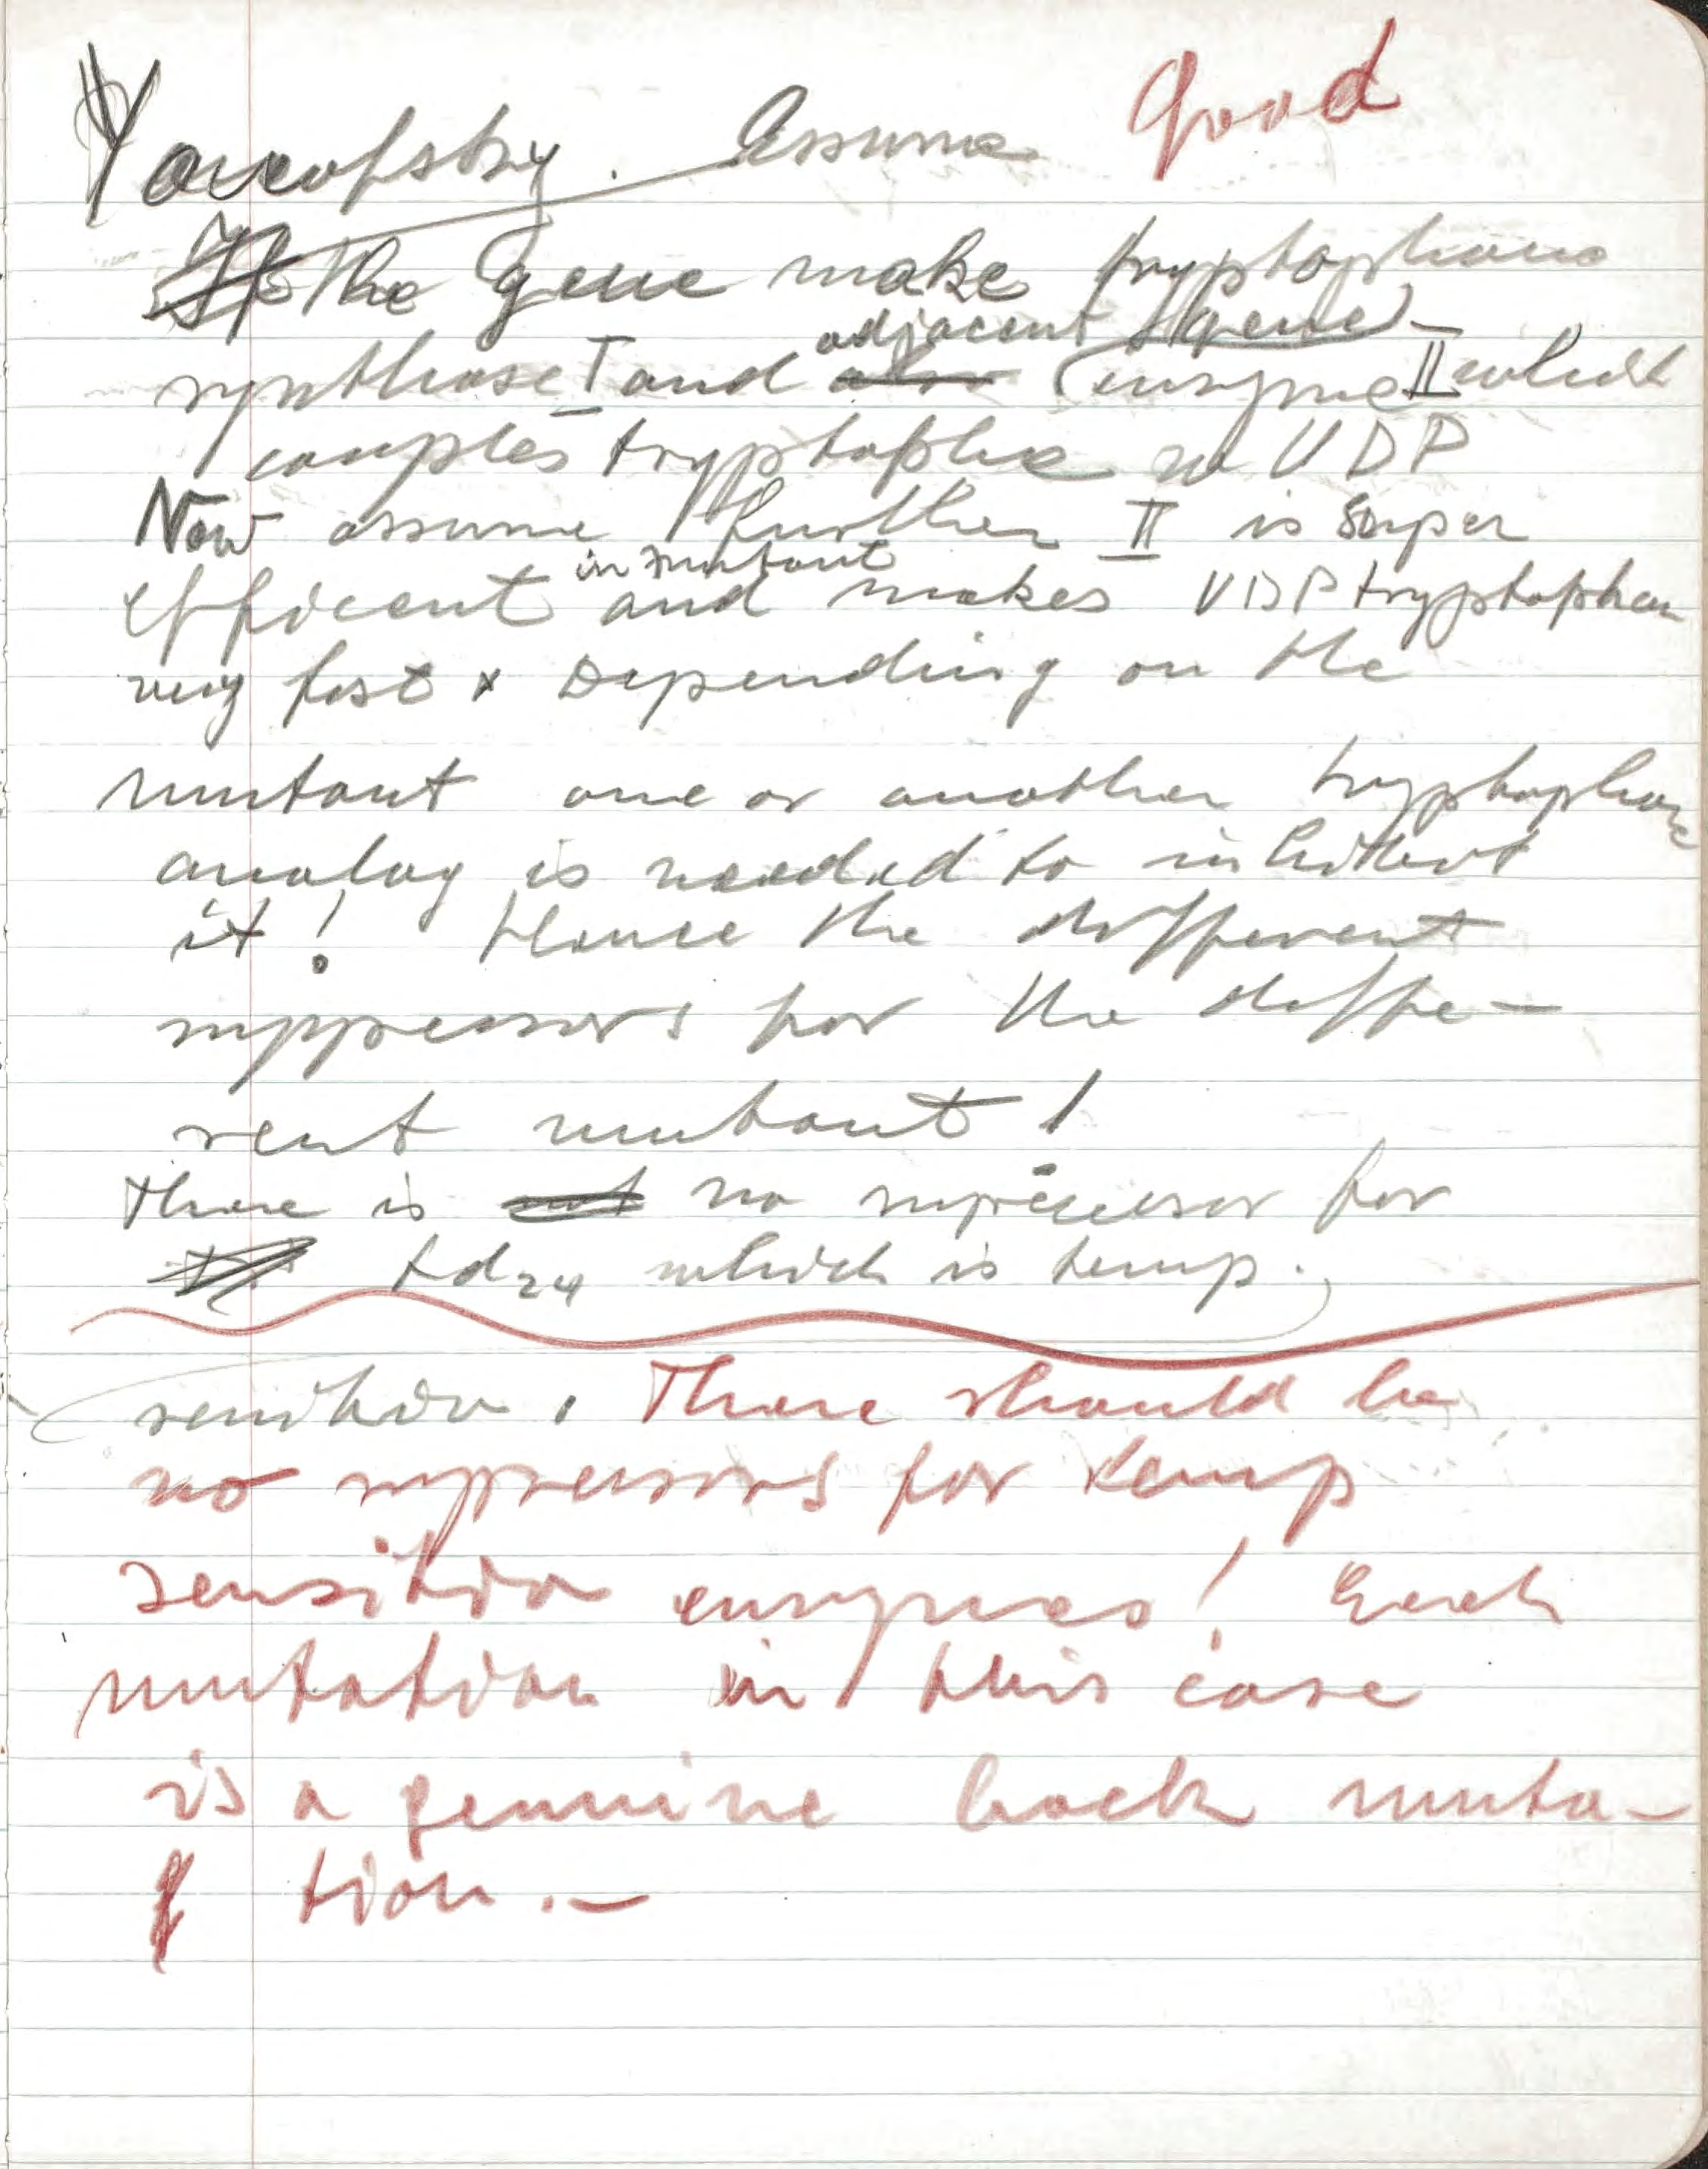 Good
Yanofsky. Assume
If the gene make tryptophane
adjacent gene
synthase I and also (enzyme II which
couples tryptophane w UDP
Now assume further II is super
in mutant
efficent and makes UDP tryptophan
very fast x Depending on the
mutant one or another tryptophane
analog is needed to inhibit
it! Hence the different
suppressors for the diffe-
rent mutant!
There is not no supressor for
td24 which is temp.
sensitive. There should be
no suppressors for temp
sensitive enzymes! Each
mutation in this case
is a genuine back muta-
tion.-